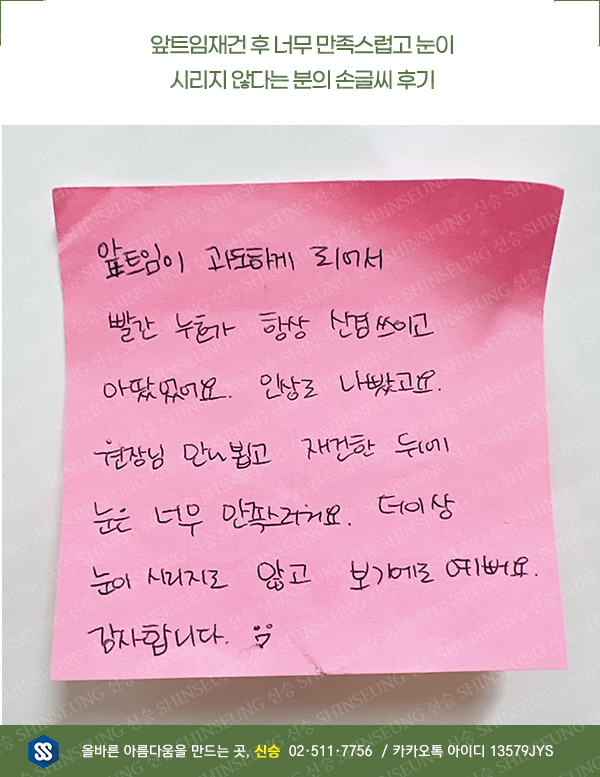 앞트임재건 후 너무 만족스럽고 눈이
시리지 않다는 분의 손글씨 후기
앞트임이 과도하게 되어서
빨간 누호가 항상 신경쓰이고
아팠었어요. 인상도 나빴고요.
원장님 만나뵙고 재건한 뒤에
눈은 너무 만족스러워요. 더이상
눈이 시리지도 않고 보기에도 예뻐요.
감사합니다.
올바른 아름다움을 만드는 곳, 신승 02·511·7756 / 카카오톡 아이디 13579JYS
SHINSEUNG 신승